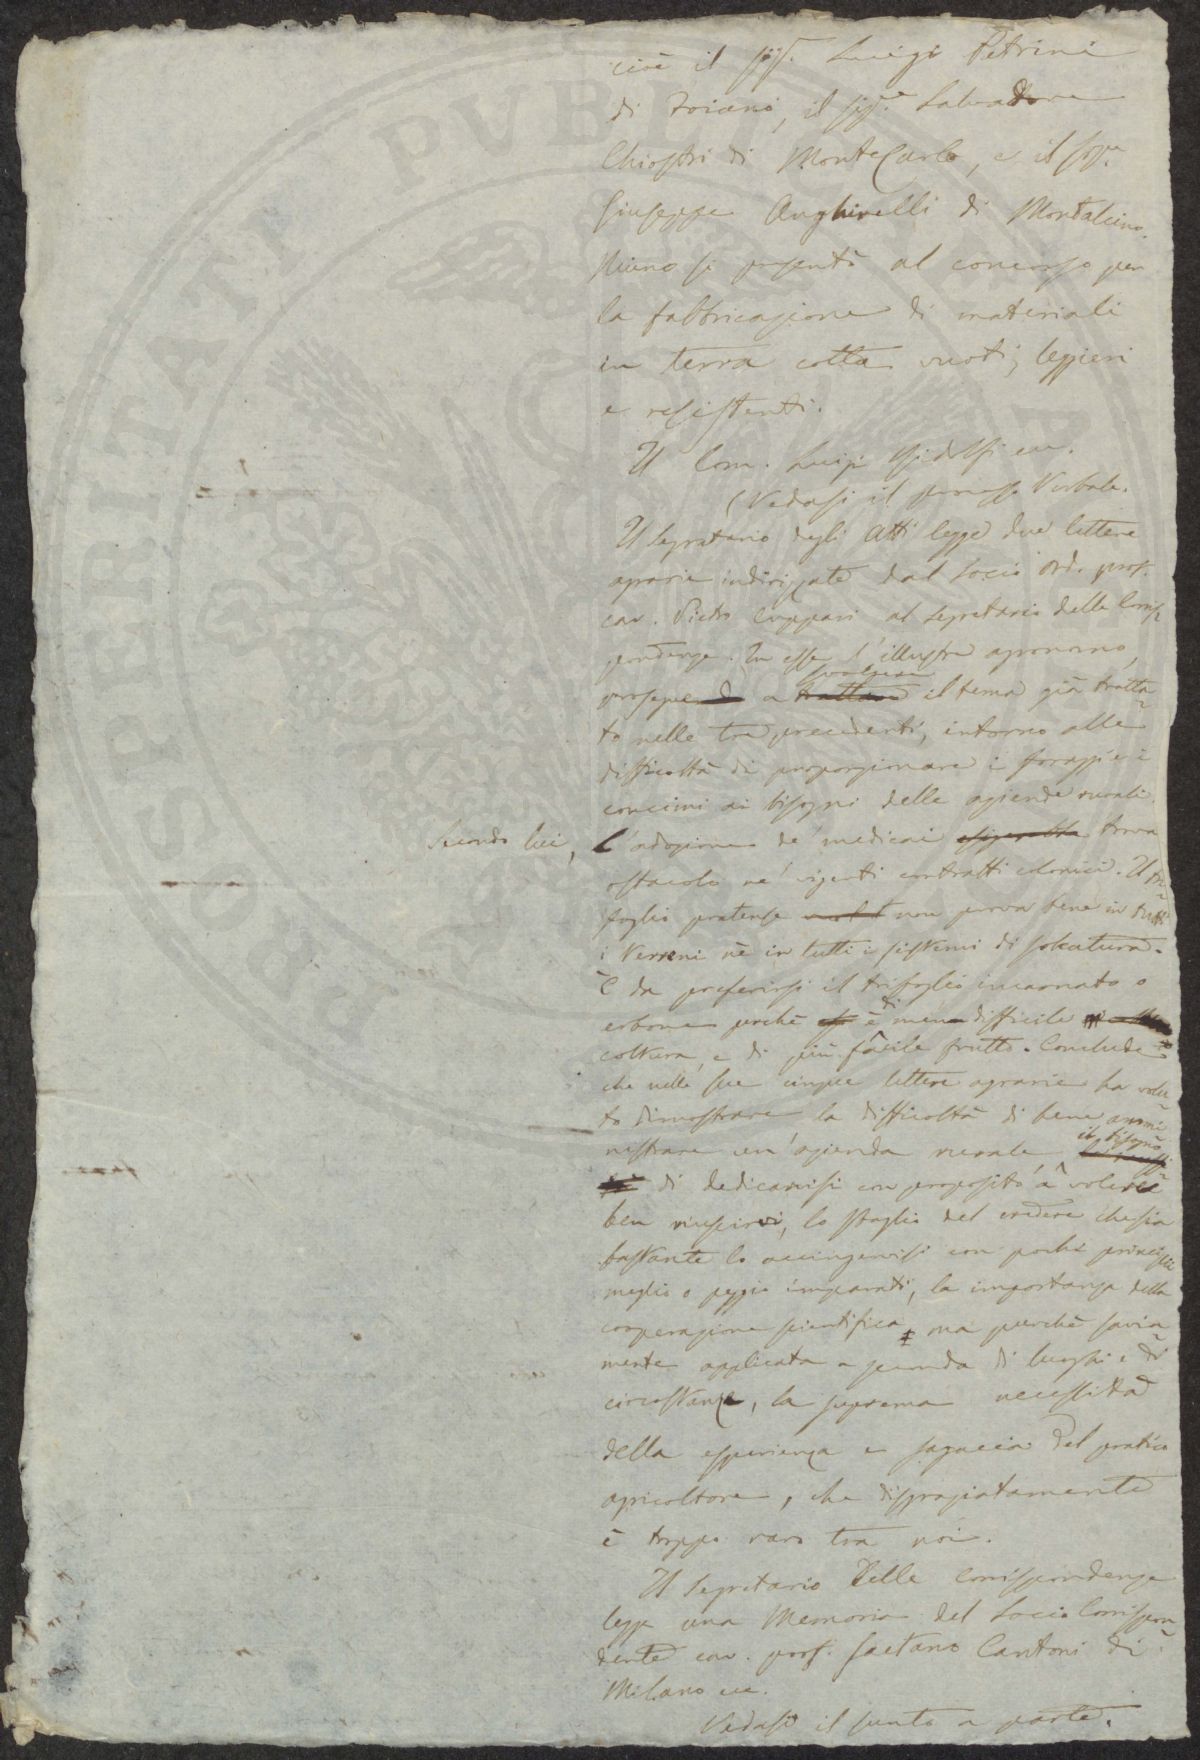 cioè il sig.r Luigi Petrini
di Foiano, il sig.re Salvadore
Chiostri di MonteCarlo, e il sig.re
Giuseppe Anghirelli di Montalcino.
Niuno si presentò al concorso per
la fabbricazione di materiali
in terra cotta vuoti, leggieri
e resistenti.
Il Com. Luigi Ridolfi ecc.
(Vedasi il processo Verbale.
Il Segretario degli Atti legge due lettere
agrarie indirizzate dal Socio Ord. prof.
cav. Pietro Cuppari al Segretario delle Corris
pondenze. In esse l'illustre agronomo,
svolgere
prosegue a trattare il tema già tratta
to nelle tre precedenti, intorno alle
difficoltà di proporzionare i foraggi e i
concimi ai bisogni delle aziende rurali.
Secondo lui, l'adozione de' medicai trova
ostacolo ne' vigenti contratti colonici. Il tri
foglio pratense non prova bene in tutti
i terreni nè in tutti i sistemi di soccatura.
È da preferirsi il trifoglio incarnato o
erbone perchè è di men difficile
coltura, e di più facile frutto. Conclude
che nelle sue cinque lettere agrarie ha volu
to dimostrare la difficoltà di bene ammi
nistrare un'azienda rurale, il bisogno
di dedicarvisi con proposito a volerci
ben riuscirvi, lo sbaglio del credere che sia
bastante lo accingervisi con pochi principii
meglio o peggio imparati, la importanza della
cooperazione scientifica, ma perchè savia
mente applicata a seconda di luoghi e di
circostanze, la suprema necessità
della esperienza e sagacia del pratico
agricoltore, che disgraziatamente
è troppo raro tra noi.
Il Segretario delle Corrispondenze
legge una Memoria del Socio Corrispon
dente cav. prof. Gaetano Cantoni di
Milano ecc.
Vedasi il sunto a parte.
PROSPERITATI PVBLICAE